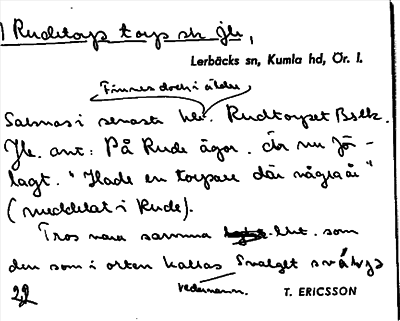 Rudetorps torp sk Jb,
Lerbäcks sn, Kumla hd, Ör. l.
Finnes dock i äldre
Saknas i senaste hbr. Rudtorpet Bslk.
Jb. ant: På Rude ägor. där nu jör-
lagt. "Hade en torpare där några år"
(meddelat i Rude).
Tros vara samma lht. som
den som i orten kallas Svalget
vedermann. T. ERICSSON